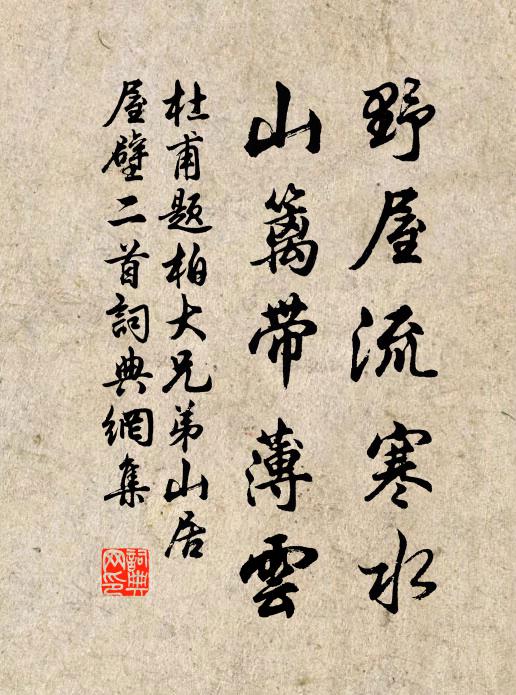 野屋流寒水
山篱帶薄雲
杜甫題柏大兄弟山居
屋壁二首詞典網集
詞典網印